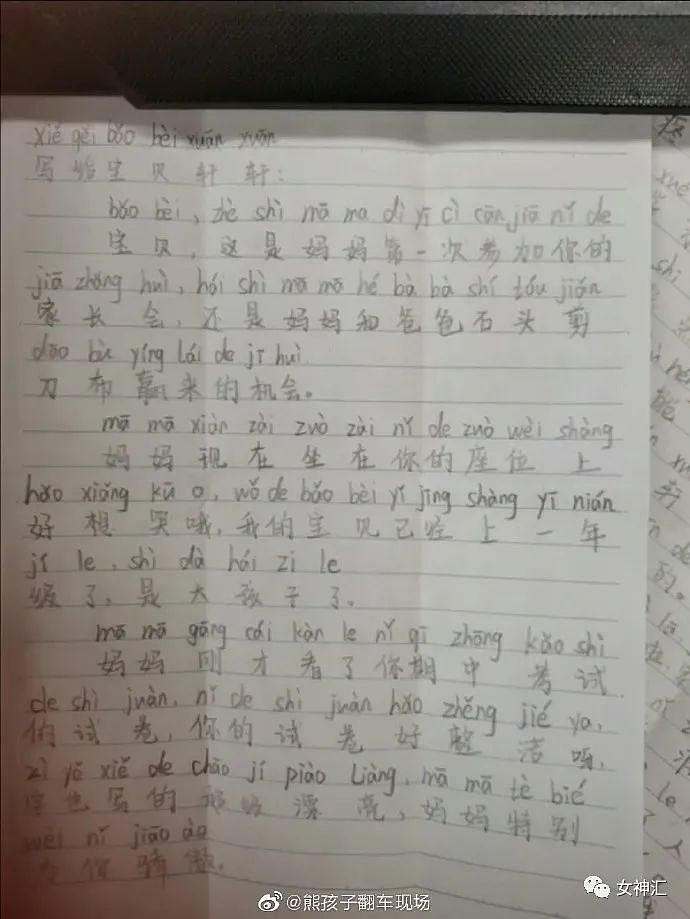 xiě gěi bǎo bèi xuān xuān
写给宝贝轩轩：
bǎo bèi，zhè shì mā ma dì yī cì cān jiā nǐ de
宝贝，这是妈妈第一次参加你的
jiā zhǎng huì，hái shì mā mā hé bà bà shí tóu jiǎn
家长会，还是妈妈和爸爸石头剪
dāo bù yíng lái de jī huì
刀布赢来的机会。
mā mā xiàn zài zuò zài nǐ de zuò wèi shàng
妈妈现在坐在你的座位上
hǎo xiǎng kū o，wǒ de bǎo bèi yǐ jīng shàng yī nián
好想哭哦，我的宝贝已经上一年
jí le，shì dà hái zi le
级了，是大孩子了。
mā mā gāng cái kàn le nǐ qī zhōng kǎo shì
妈妈刚才看了你期中考试
de shì juàn，nǐ de shì juàn hǎo zhěng jié ya，
的试卷，你的试卷好整洁呀，
zì yě xiě de chāo jí piào liàng，mā mā tè bié
字也写的超级漂亮，妈妈特别
wèi nǐ jiāo ào
为你骄傲。
@熊孩子翻车现场
女神汇